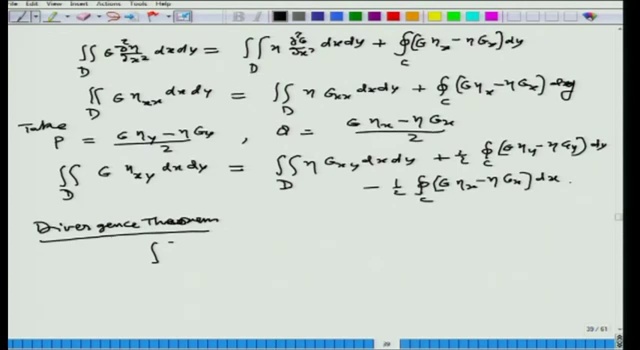 File Edit View Insert Actions Tools Help
∬_D G ∂²η/∂x² dxdy = ∬_D η ∂²G/∂x² dxdy + ∮_C (G η_x − η G_x) dy
∬_D G η_xx dxdy = ∬_D η G_xx dxdy + ∮_C (G η_x − η G_x) dy
Take P = (G η_y − η G_y)/2 , Q = (G η_x − η G_x)/2
∬_D G η_xy dxdy = ∬_D η G_xy dxdy + ½ ∮_C (G η_y − η G_y) dy
− ½ ∮_C (G η_x − η G_x) dx.
Divergence Theorem
∫